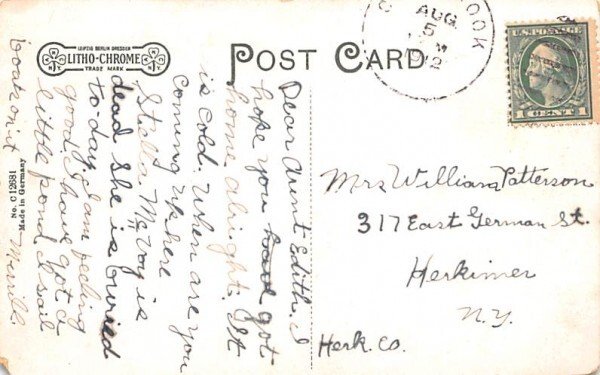 LEIPZIG BERLIN DRESDEN
LITHO-CHROME
TRADE MARK
POST CARD
AUG
5
OOK
U.S. POSTAGE
1 CENT 1
No. C 12681
Made in Germany
Dear Aunt Edith. I
hope you had got
home alright. It
is cold. When are you
coming up here
Stella McVoy is
dead she is buried
to day. I am feeling
good I have got a
little pond I sail
boats on it
Merill.
Mrs William Patterson
317 East German St.
Herkimer
N.Y.
Herk. Co.